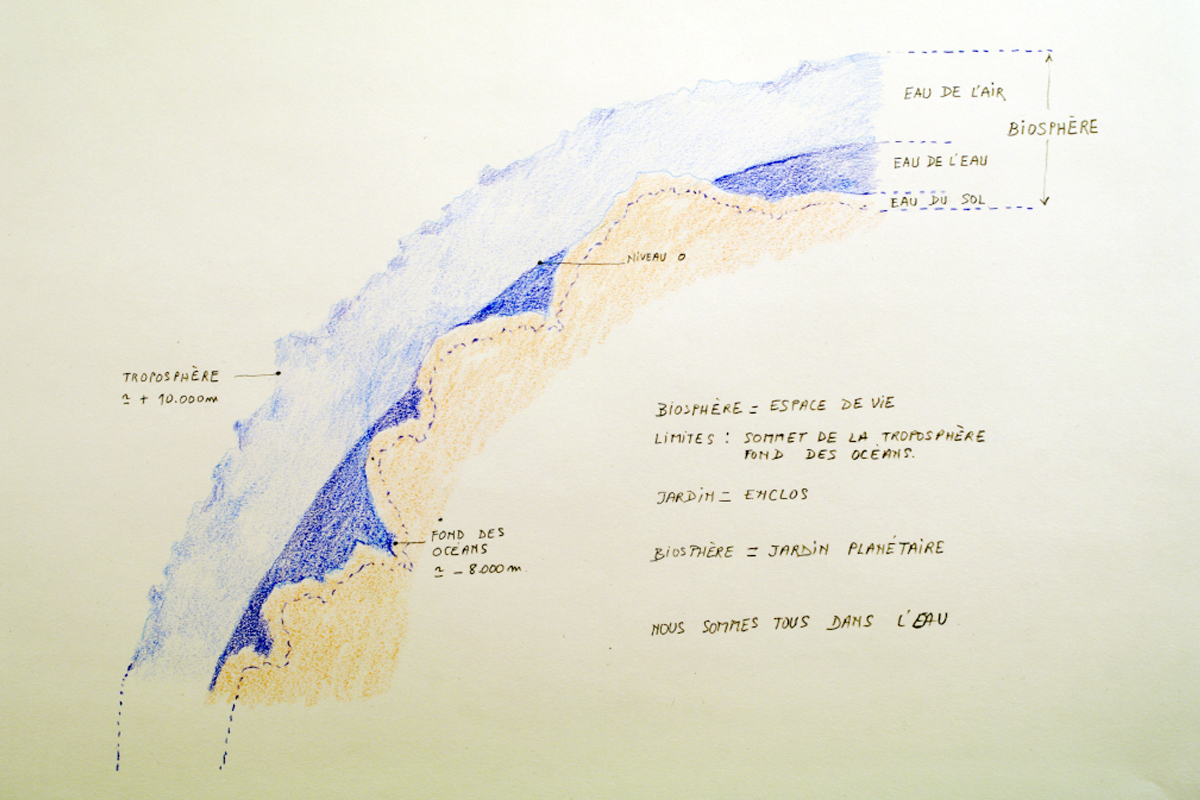 EAU DE L'AIR
BIOSPHÈRE
EAU DE L'EAU
EAU DU SOL
NIVEAU 0
TROPOSPHÈRE
≃ + 10.000m
BIOSPHÈRE = ESPACE DE VIE
LIMITES : SOMMET DE LA TROPOSPHÈRE
FOND DES OCÉANS.
JARDIN = ENCLOS
FOND DES
OCÉANS
≃ - 8.000m.
BIOSPHÈRE = JARDIN PLANÉTAIRE
NOUS SOMMES TOUS DANS L'EAU